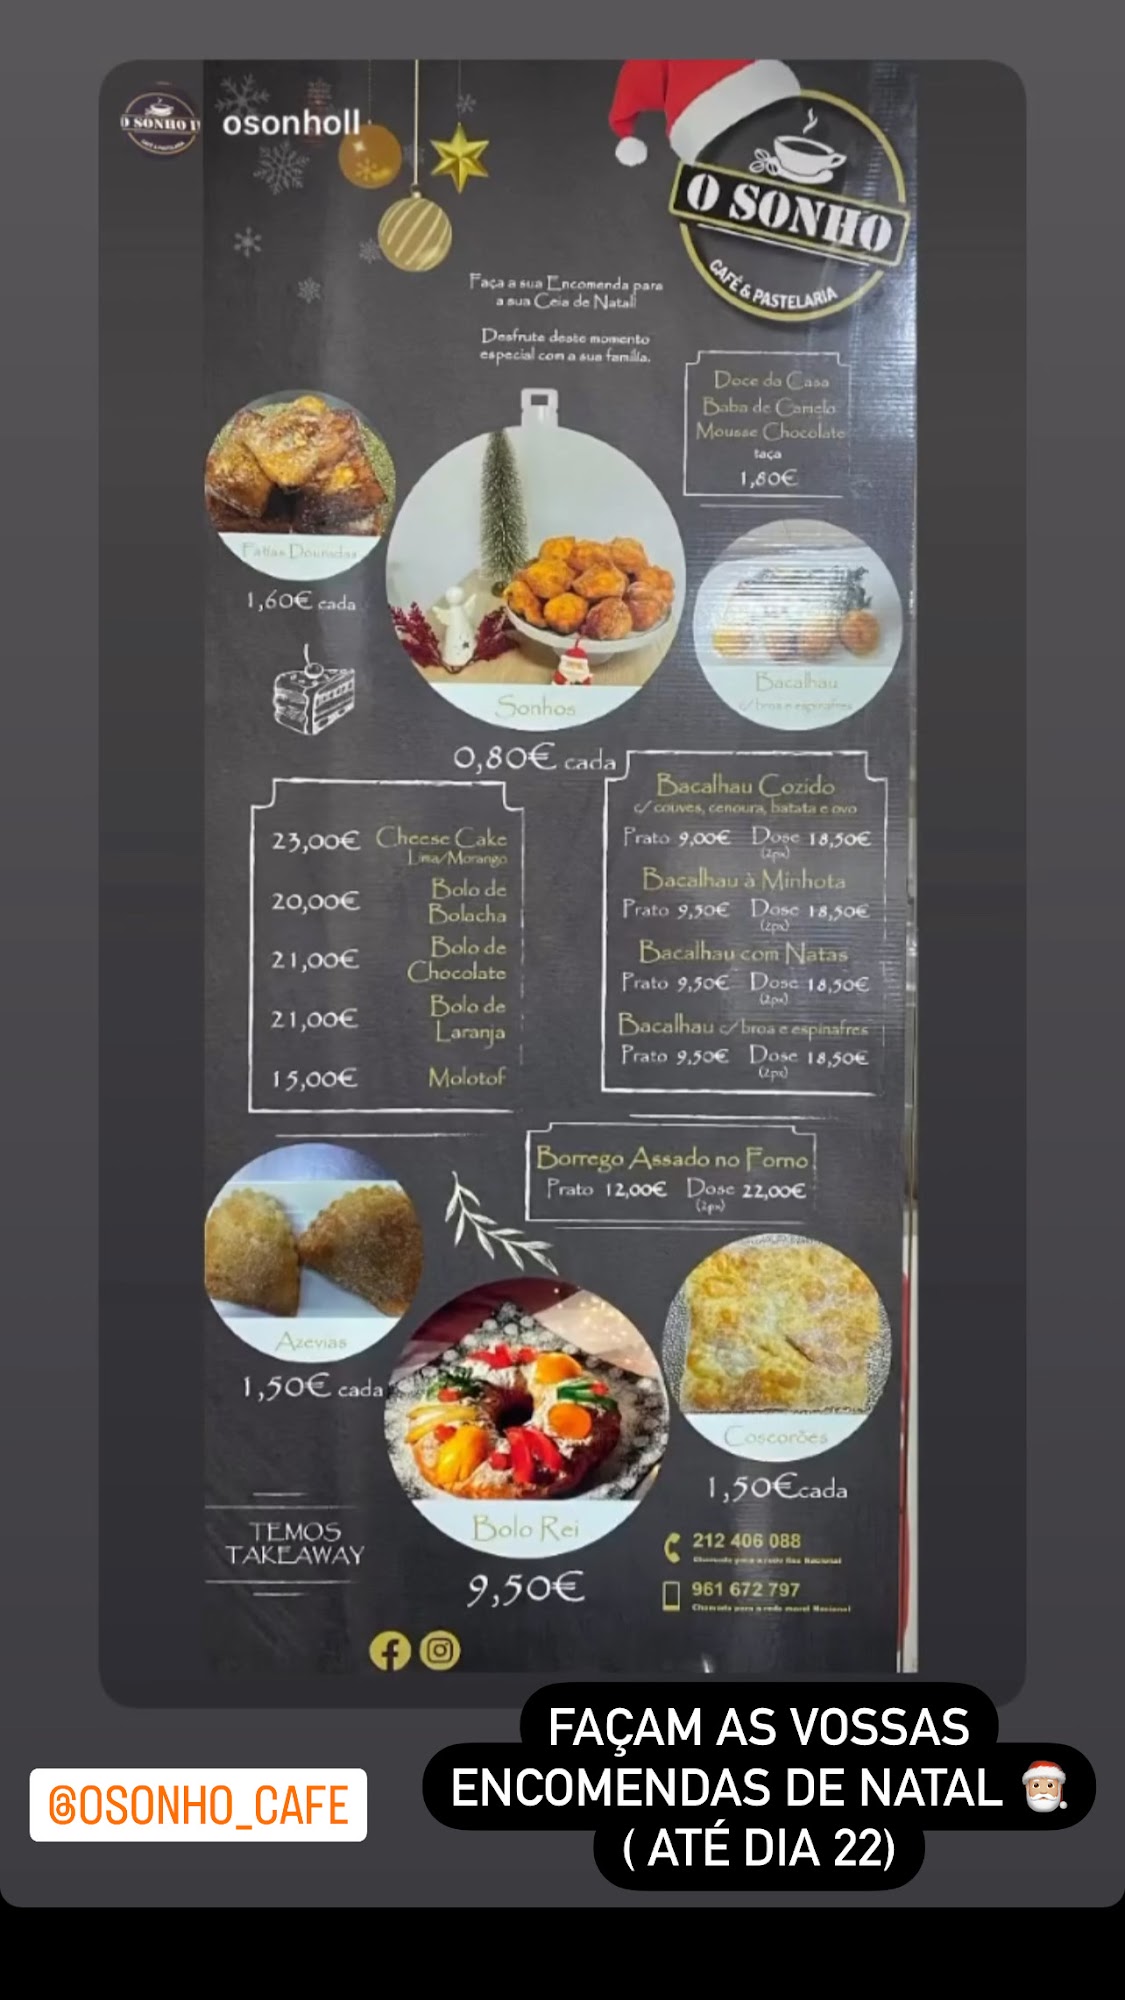 O SONHO II
CAFÉ & PASTELARIA
osonholl
O SONHO
CAFÉ & PASTELARIA
Faça a sua Encomenda para
a sua Ceia de Natal!
Desfrute deste momento
especial com a sua família.
Doce da Casa
Baba de Camelo
Mousse Chocolate
taça
1,80€
Fatias Douradas
1,60€ cada
Sonhos
0,80€ cada
Bacalhau
c/ broa e espinafres
23,00€ Cheese Cake
Lima/Morango
20,00€ Bolo de
Bolacha
21,00€ Bolo de
Chocolate
21,00€ Bolo de
Laranja
15,00€ Molotof
Bacalhau Cozido
c/ couves, cenoura, batata e ovo
Prato 9,00€ Dose 18,50€
(2px)
Bacalhau à Minhota
Prato 9,50€ Dose 18,50€
(2px)
Bacalhau com Natas
Prato 9,50€ Dose 18,50€
(2px)
Bacalhau c/ broa e espinafres
Prato 9,50€ Dose 18,50€
(2px)
Borrego Assado no Forno
Prato 12,00€ Dose 22,00€
(2px)
Azevias
1,50€ cada
Bolo Rei
9,50€
Coscorões
1,50€ cada
TEMOS
TAKEAWAY
212 406 088
Chamada para a rede fixa Nacional
961 672 797
Chamada para a rede movel Nacional
@OSONHO_CAFE
FAÇAM AS VOSSAS
ENCOMENDAS DE NATAL 🎅🏼
( ATÉ DIA 22)